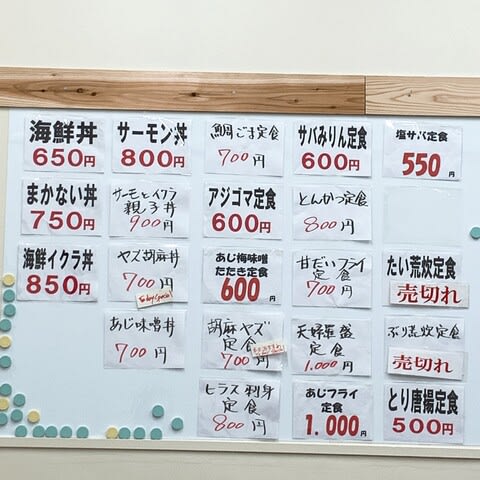 海鮮丼
650円
サーモン丼
800円
鯛ごま定食
700円
サバみりん定食
600円
塩サバ定食
550円
まかない丼
750円
サーモとイクラ
親子丼
900円
アジゴマ定食
600円
とんかつ定食
800円
海鮮イクラ丼
850円
ヤズ胡麻丼
700円
あじ梅味噌
たたき定食
600円
甘だいフライ
定食
700円
たい荒炊定食
売切れ
あじ味噌丼
700円
胡麻ヤズ
定食
700円
天婦羅盛
定食
1.000円
ぶり荒炊定食
売切れ
ヒラス刺身
定食
800円
あじフライ
定食
1.000円
とり唐揚定食
500円